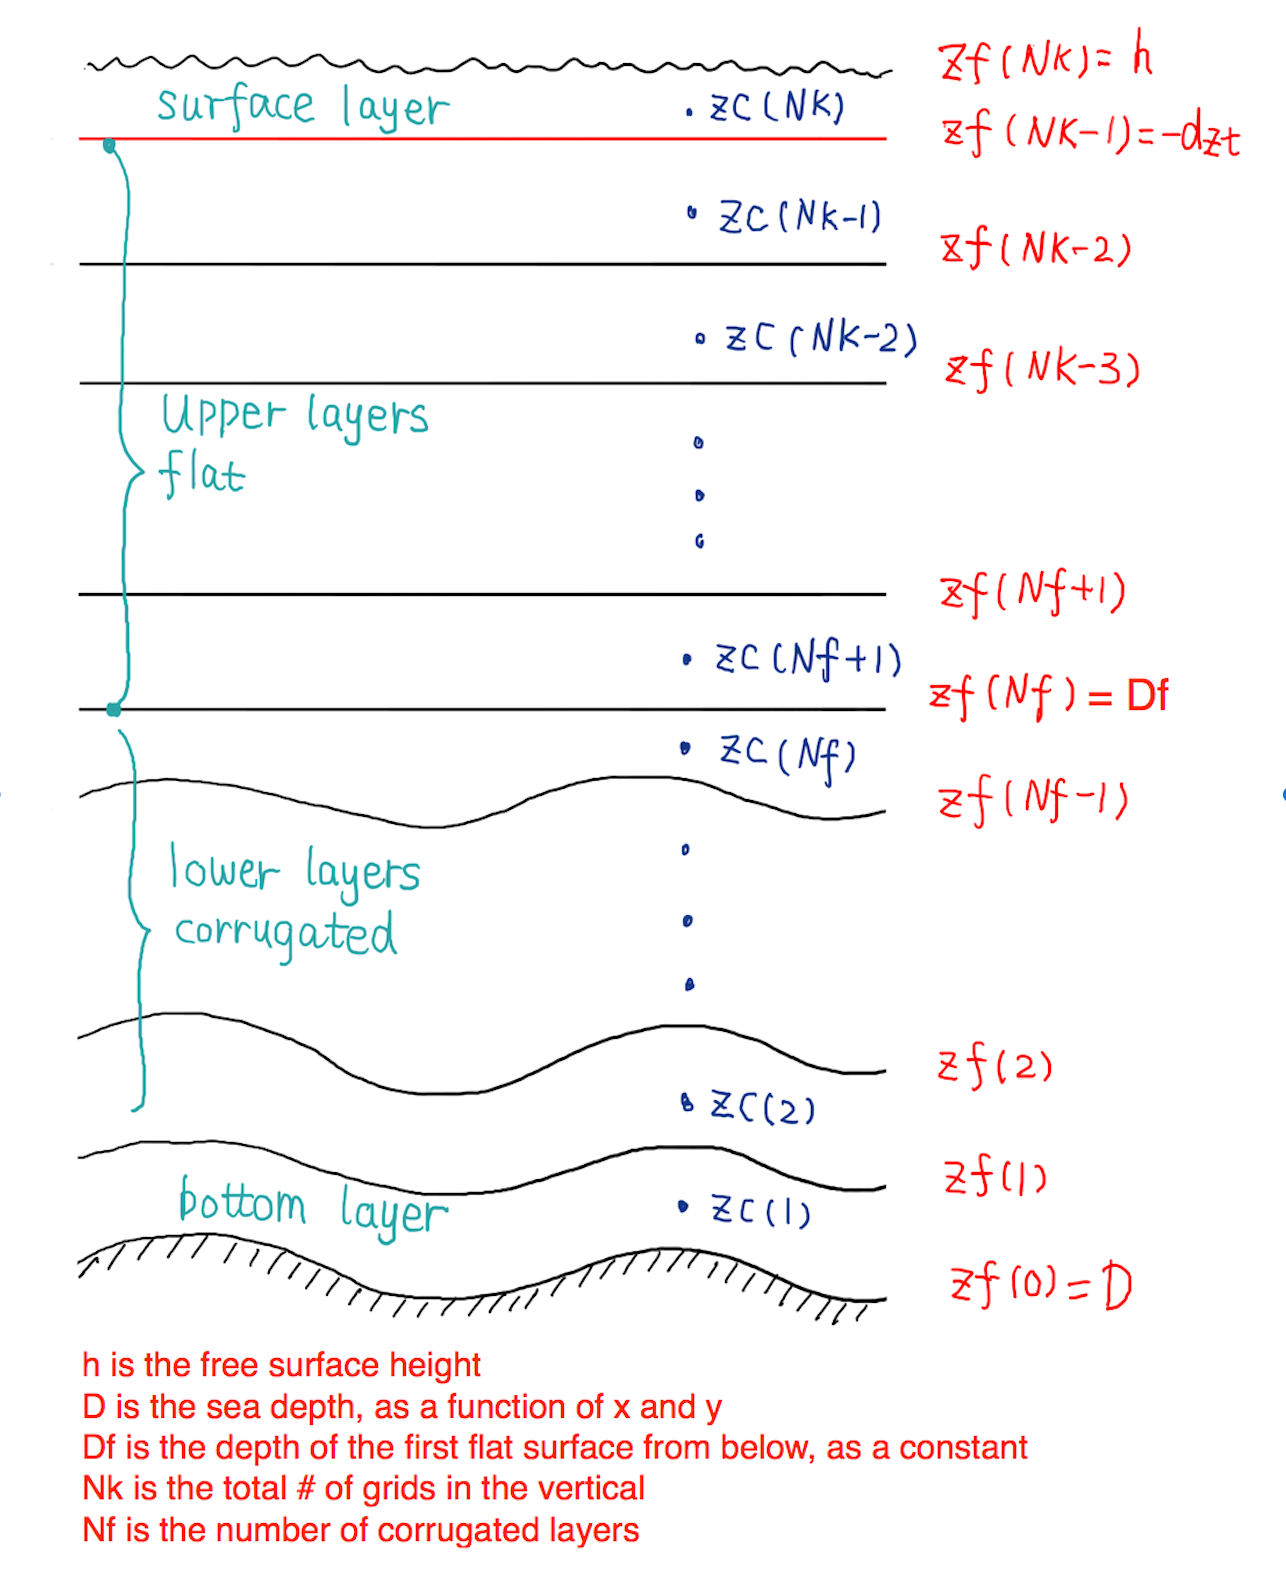 zf(Nk)= h
surface layer
. zc(Nk)
zf(Nk-1)=-dzt
zc(Nk-1)
zf(Nk-2)
zc(Nk-2)
zf(Nk-3)
Upper layers
flat
zf(Nf+1)
zc(Nf+1)
zf(Nf) = Df
zc(Nf)
zf(Nf-1)
lower layers
corrugated
zf(2)
zc(2)
zf(1)
bottom layer
zc(1)
zf(0)=D
h is the free surface height
D is the sea depth, as a function of x and y
Df is the depth of the first flat surface from below, as a constant
Nk is the total # of grids in the vertical
Nf is the number of corrugated layers